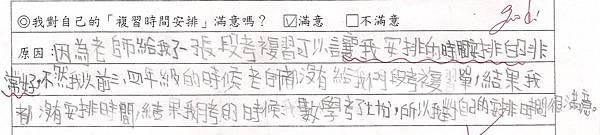 ◎我對自己的「複習時間安排」滿意嗎？ ☑滿意 □不滿意 good!
原因：因為老師給我了一張段考複習可以讓我安排的時間安排的非
常好，不然我以前三、四年級的時候老師都沒有給我們段考複習單，結果我
都沒有安排時間，結果我考的時候數學考了七十份，所以我對自己的安排時間很滿意。